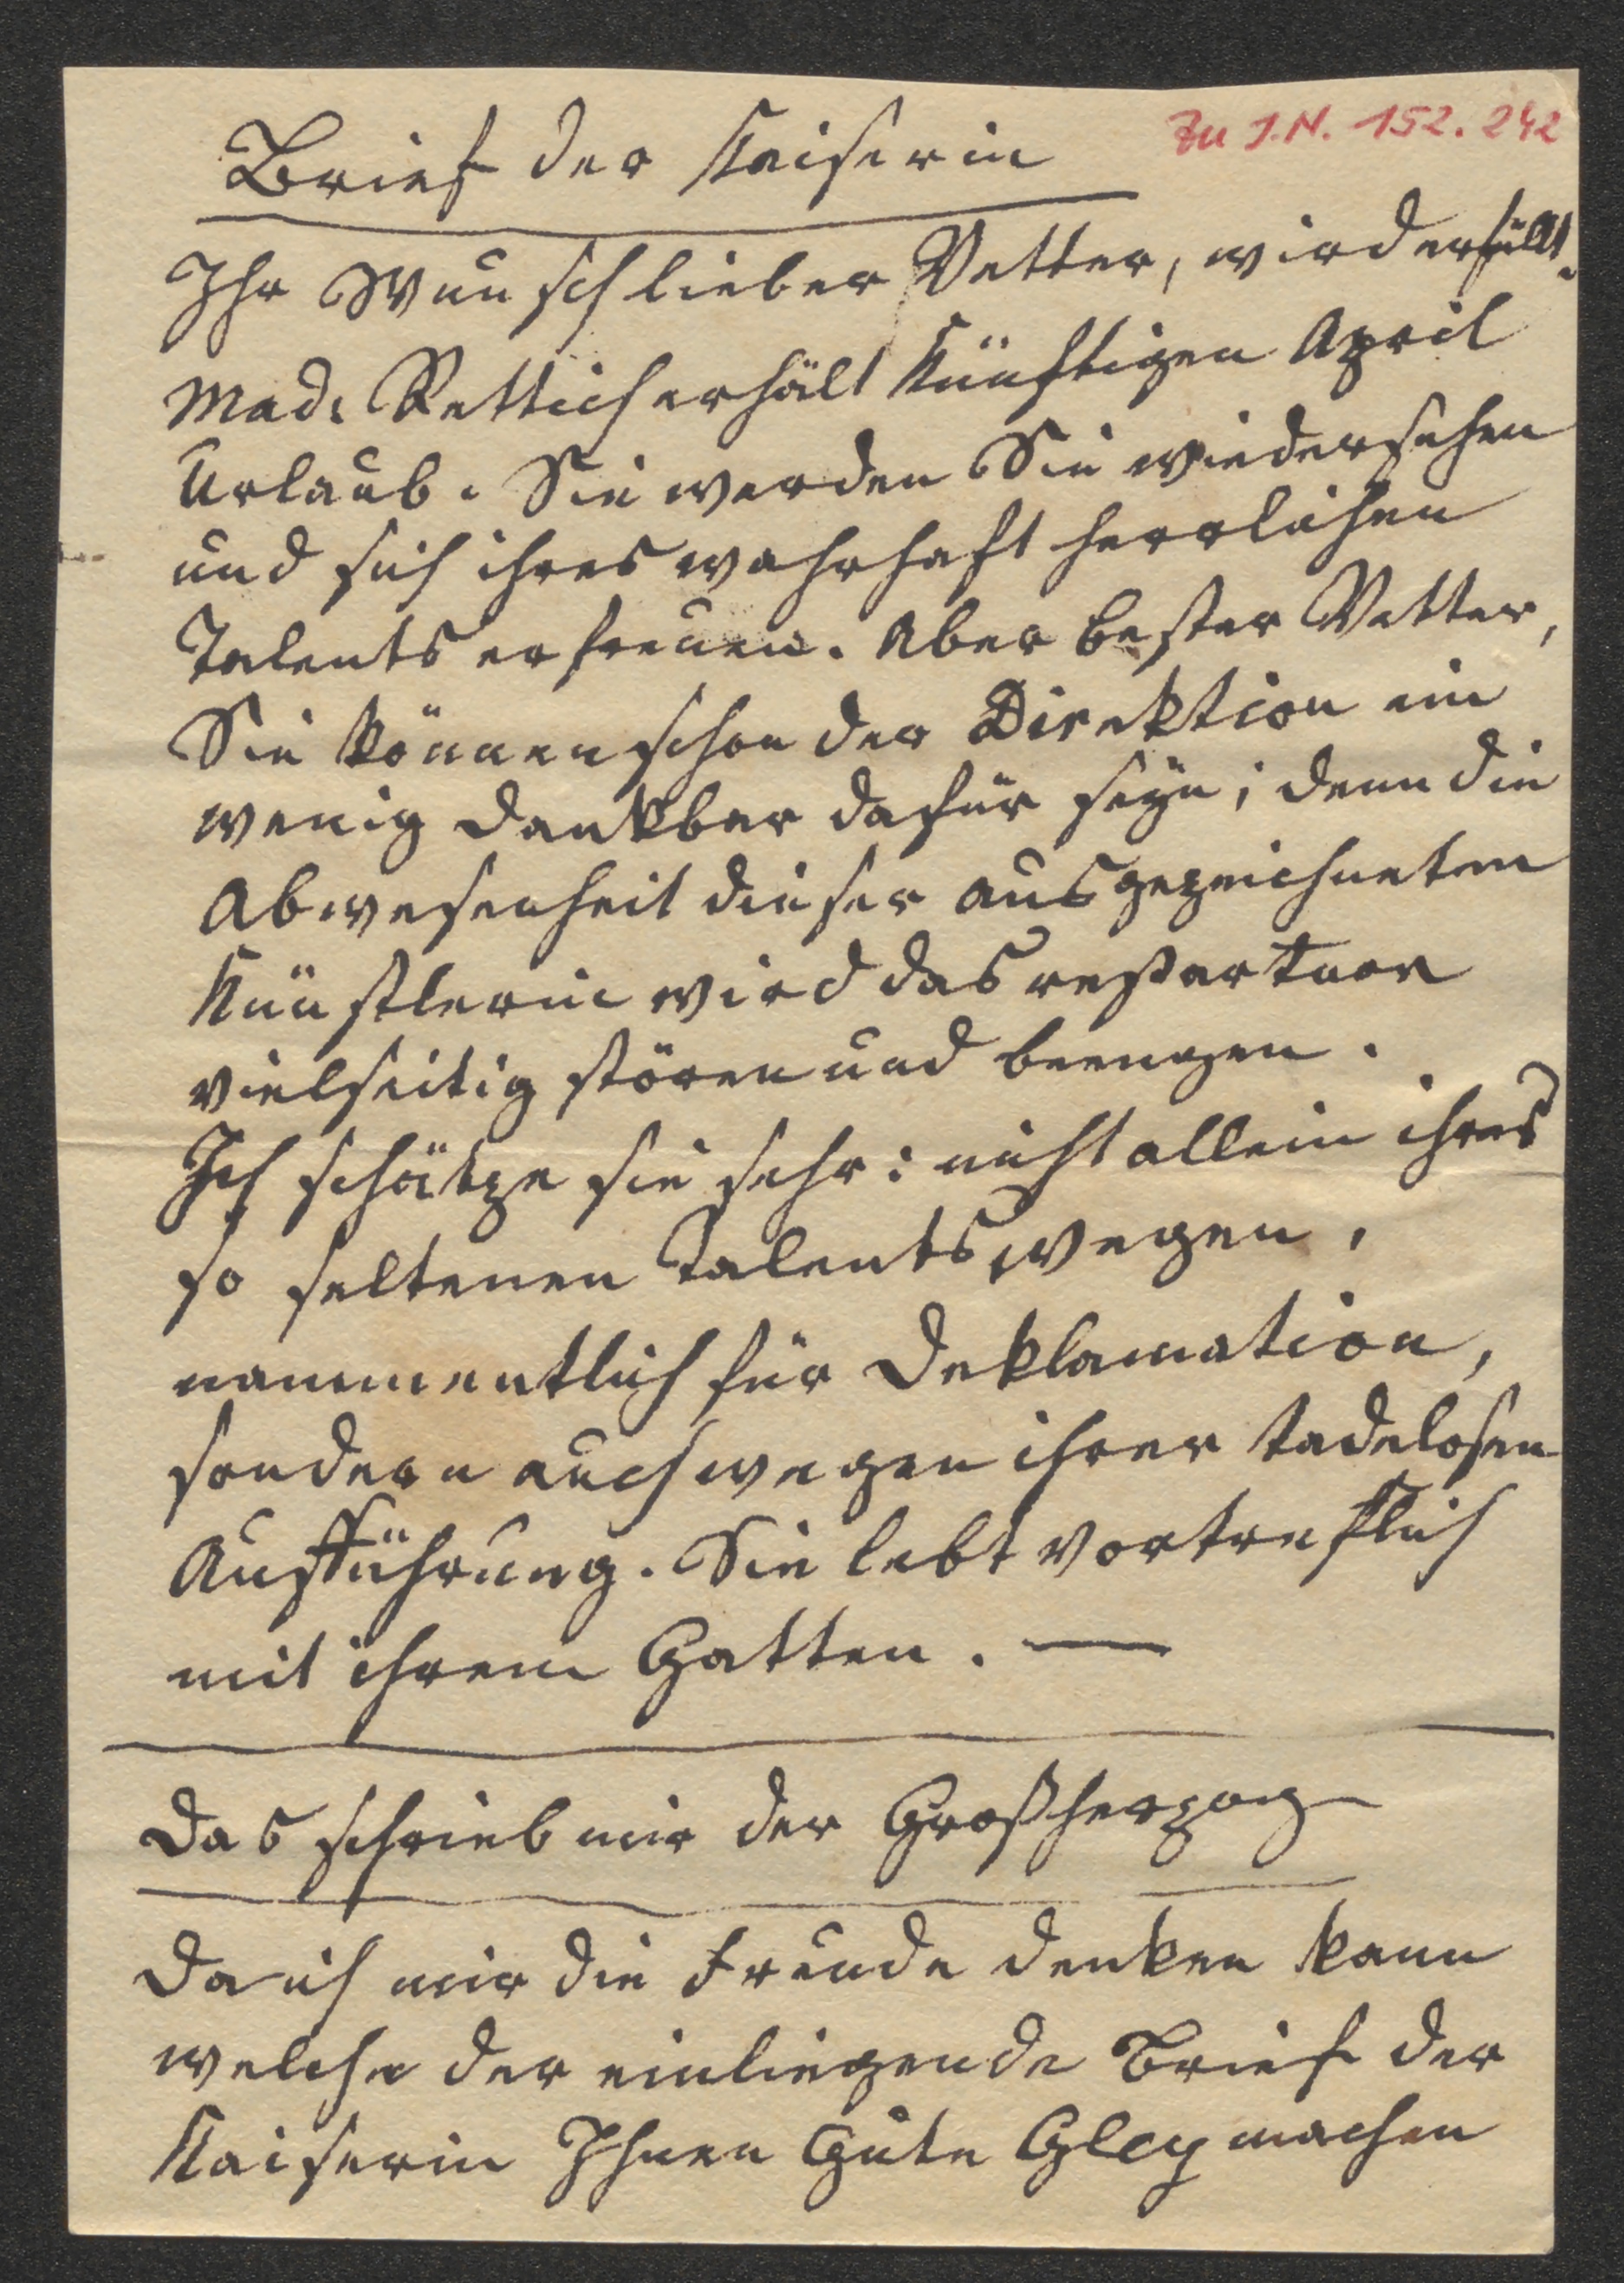 Zu I.N. 152.242
Brief der Kaiserin
Ihr Wunsch lieber Vetter, wird erfüllt.
Mad. Rettich erhält künftigen April
Urlaub. Sie werden Sie wiedersehen
und sich ihres wahrhaft herrlichen
Talents erfreuen. Aber bester Vetter,
Sie können schon der Direktion ein
wenig dankbar dafür seyn; denn die
Abwesenheit dieser ausgezeichneten
Künstlerin wird das repertuar
vielseitig stören und beengen.
Ich schätze sie sehr: nicht allein ihres
so seltenen Talents wegen,
nammentlich für Deklamation,
sondern auch wegen ihrer tadelosen
Aufführung. Sie lebt vortreflich
mit ihrem Gatten. —
Das schrieb mir der Großherzog
Da ich mir die Freude denken kann
welche der einliegende Brief der
Kaiserin Ihnen Gute Gley machen